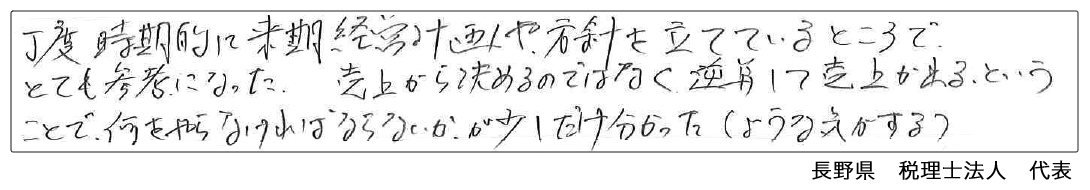 丁度時期的に来期経営計画や、方針を立てているところで、
とても参考になった。売上から決めるのではなく逆算して売上が出る、という
ことで、何をやらなければならないか、が少しだけ分かった(ような気がする)
長野県 税理士法人 代表